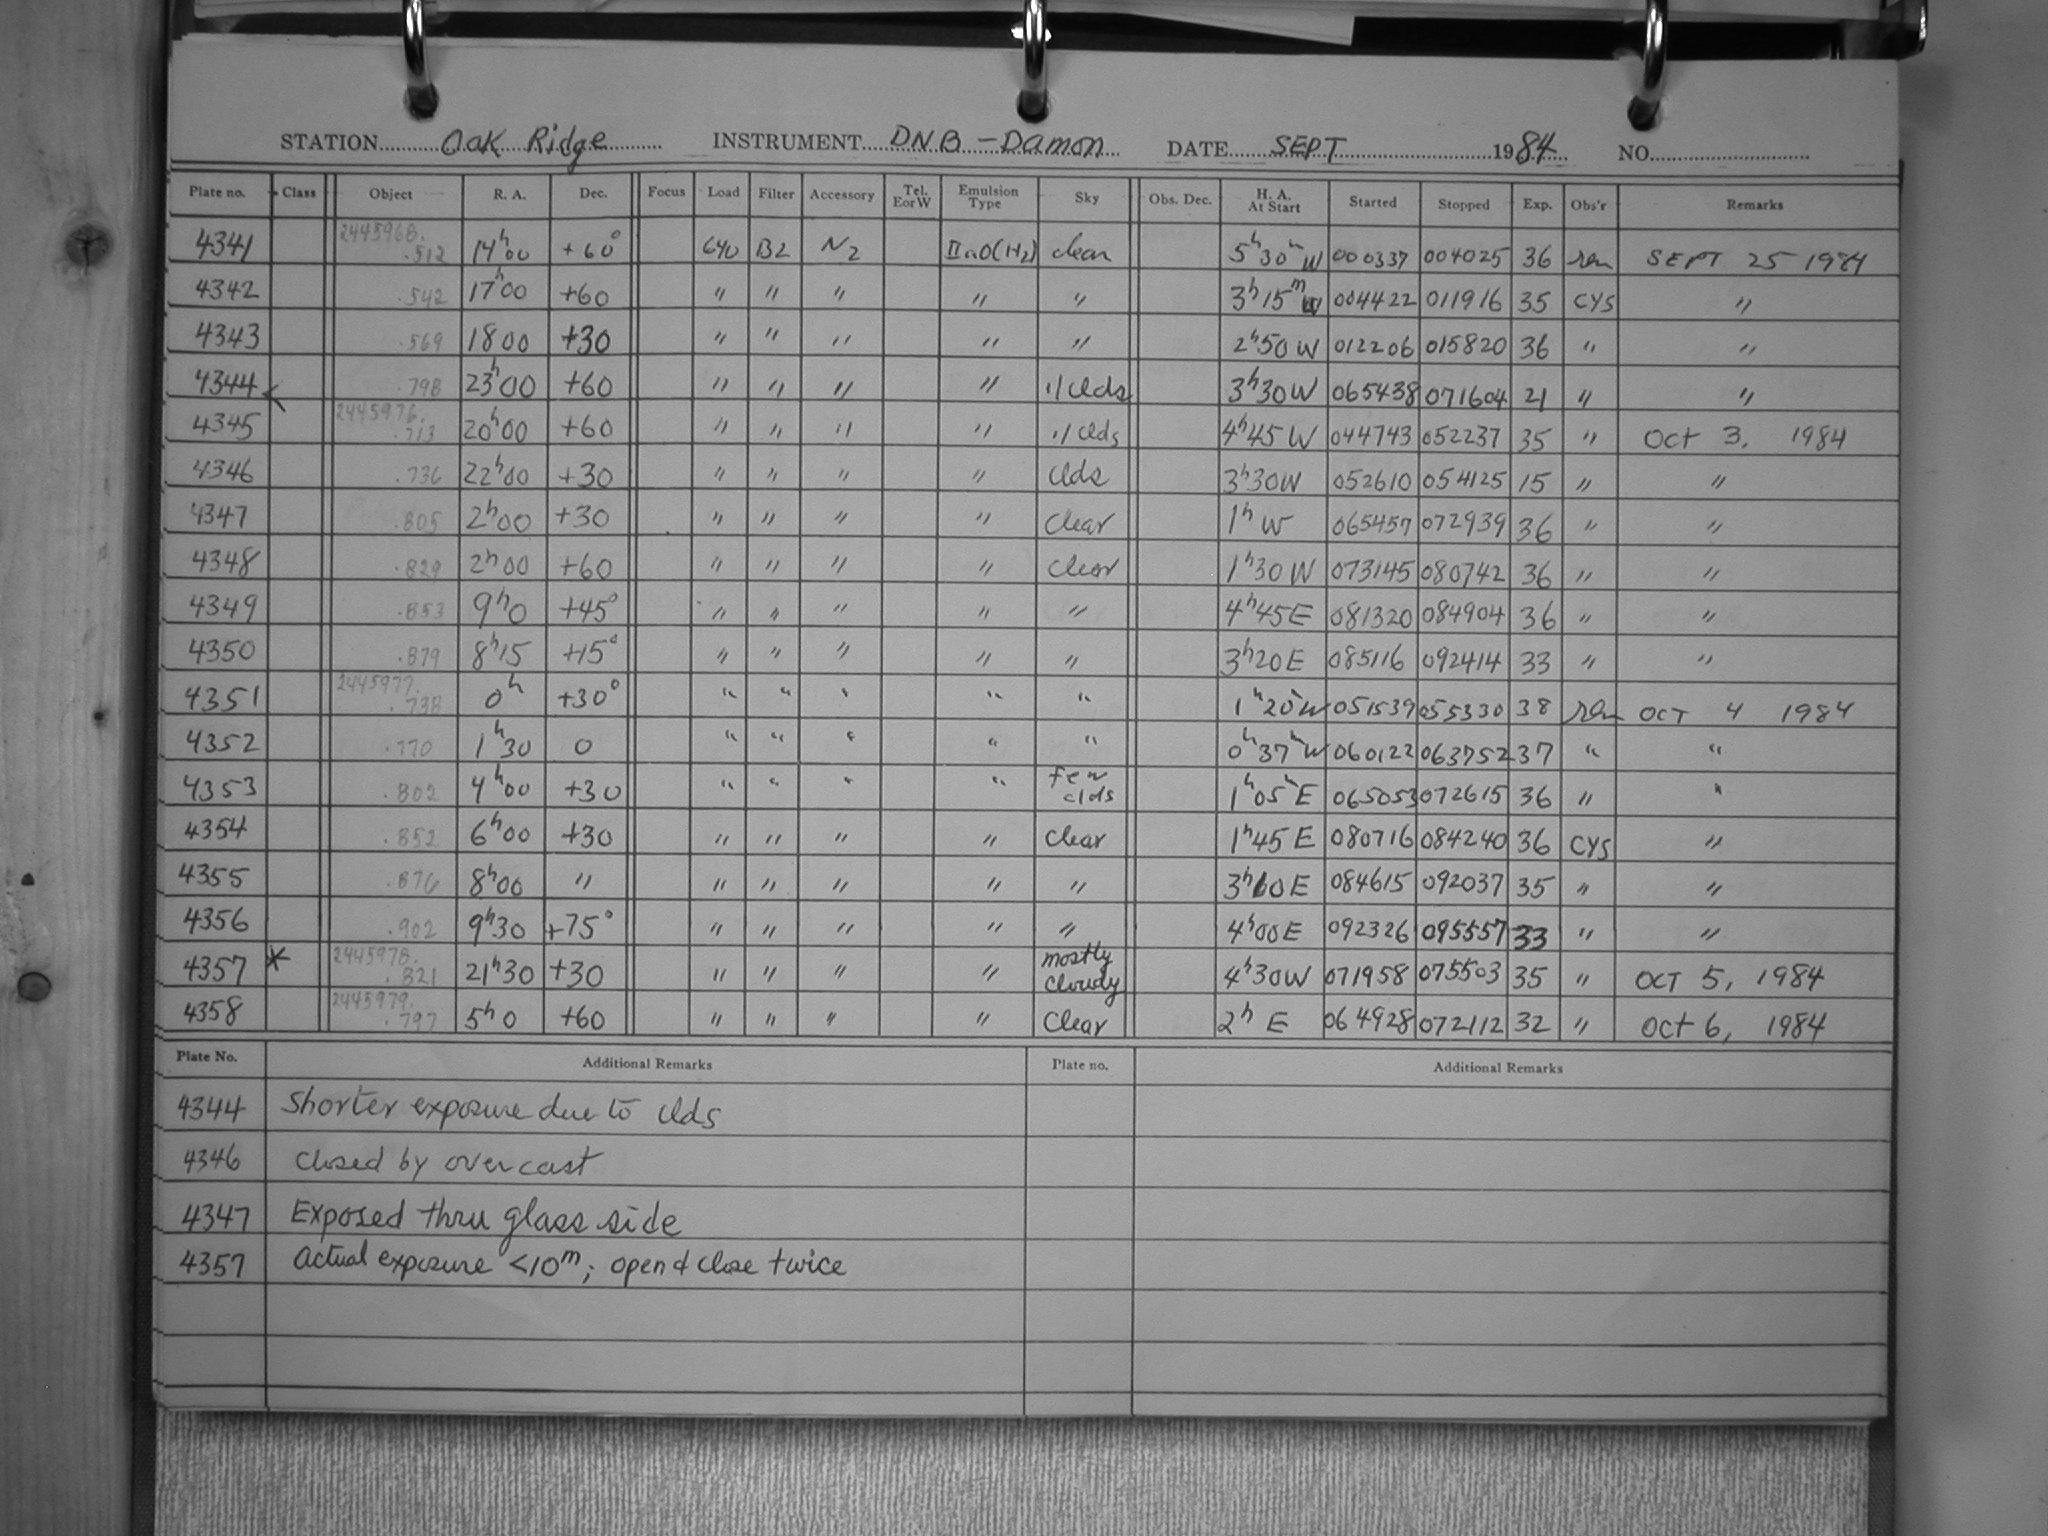 STATION Oak Ridge INSTRUMENT DNB - Damon DATE SEPT 1984 NO.
Plate no. Class Object R. A. Dec. Focus Load Filter Accessory Tel. E or W Emulsion Type Sky Obs. Dec. H. A. At Start Started Stopped Exp. Obs'r Remarks
4341 2445968. .512 14h00 +60° 640 B2 N2 IIaO(H2) clear 5h30m W 000337 004025 36 SEPT 25 1984
4342 .542 17h00 +60 " " " " " 3h15m W 004422 011916 35 CYS "
4343 .569 1800 +30 " " " " " 2h50 W 012206 015820 36 " "
4344 .798 23h00 +60 " " " " "/clds 3h30W 065438 071604 21 " "
4345 2445976. .713 20h00 +60 " " " " "/clds 4h45 W 044743 052237 35 " Oct 3, 1984
4346 .736 22h00 +30 " " " " clds 3h30W 052610 054125 15 " "
4347 .805 2h00 +30 " " " " clear 1h W 065457 072939 36 " "
4348 .829 2h00 +60 " " " " clear 1h30 W 073145 080742 36 " "
4349 .853 9h0 +45° " " " " " 4h45E 081320 084904 36 " "
4350 .879 8h15 +15° " " " " " 3h20E 085116 092414 33 " "
4351 2445977. .738 0h +30° " " " " " 1h20m W 051539 055330 38 OCT 4 1984
4352 .770 1h30 0 " " " " " 0h37m W 060122 063752 37 " "
4353 .802 4h00 +30 " " " " few clds 1h05m E 065053 072615 36 " "
4354 .852 6h00 +30 " " " " clear 1h45 E 080716 084240 36 CYS "
4355 .876 8h00 " " " " " " 3h00E 084615 092037 35 " "
4356 .902 9h30 +75° " " " " " 4h00E 092326 095557 33 " "
4357 * 2445978. .821 21h30 +30 " " " " mostly cloudy 4h30W 071958 075503 35 " OCT 5, 1984
4358 2445979. .797 5h0 +60 " " " " clear 2h E 064928 072112 32 " Oct 6, 1984
Plate No. Additional Remarks Plate no. Additional Remarks
4344 Shorter exposure due to clds
4346 closed by overcast
4347 Exposed thru glass side
4357 actual exposure <10m; open & close twice